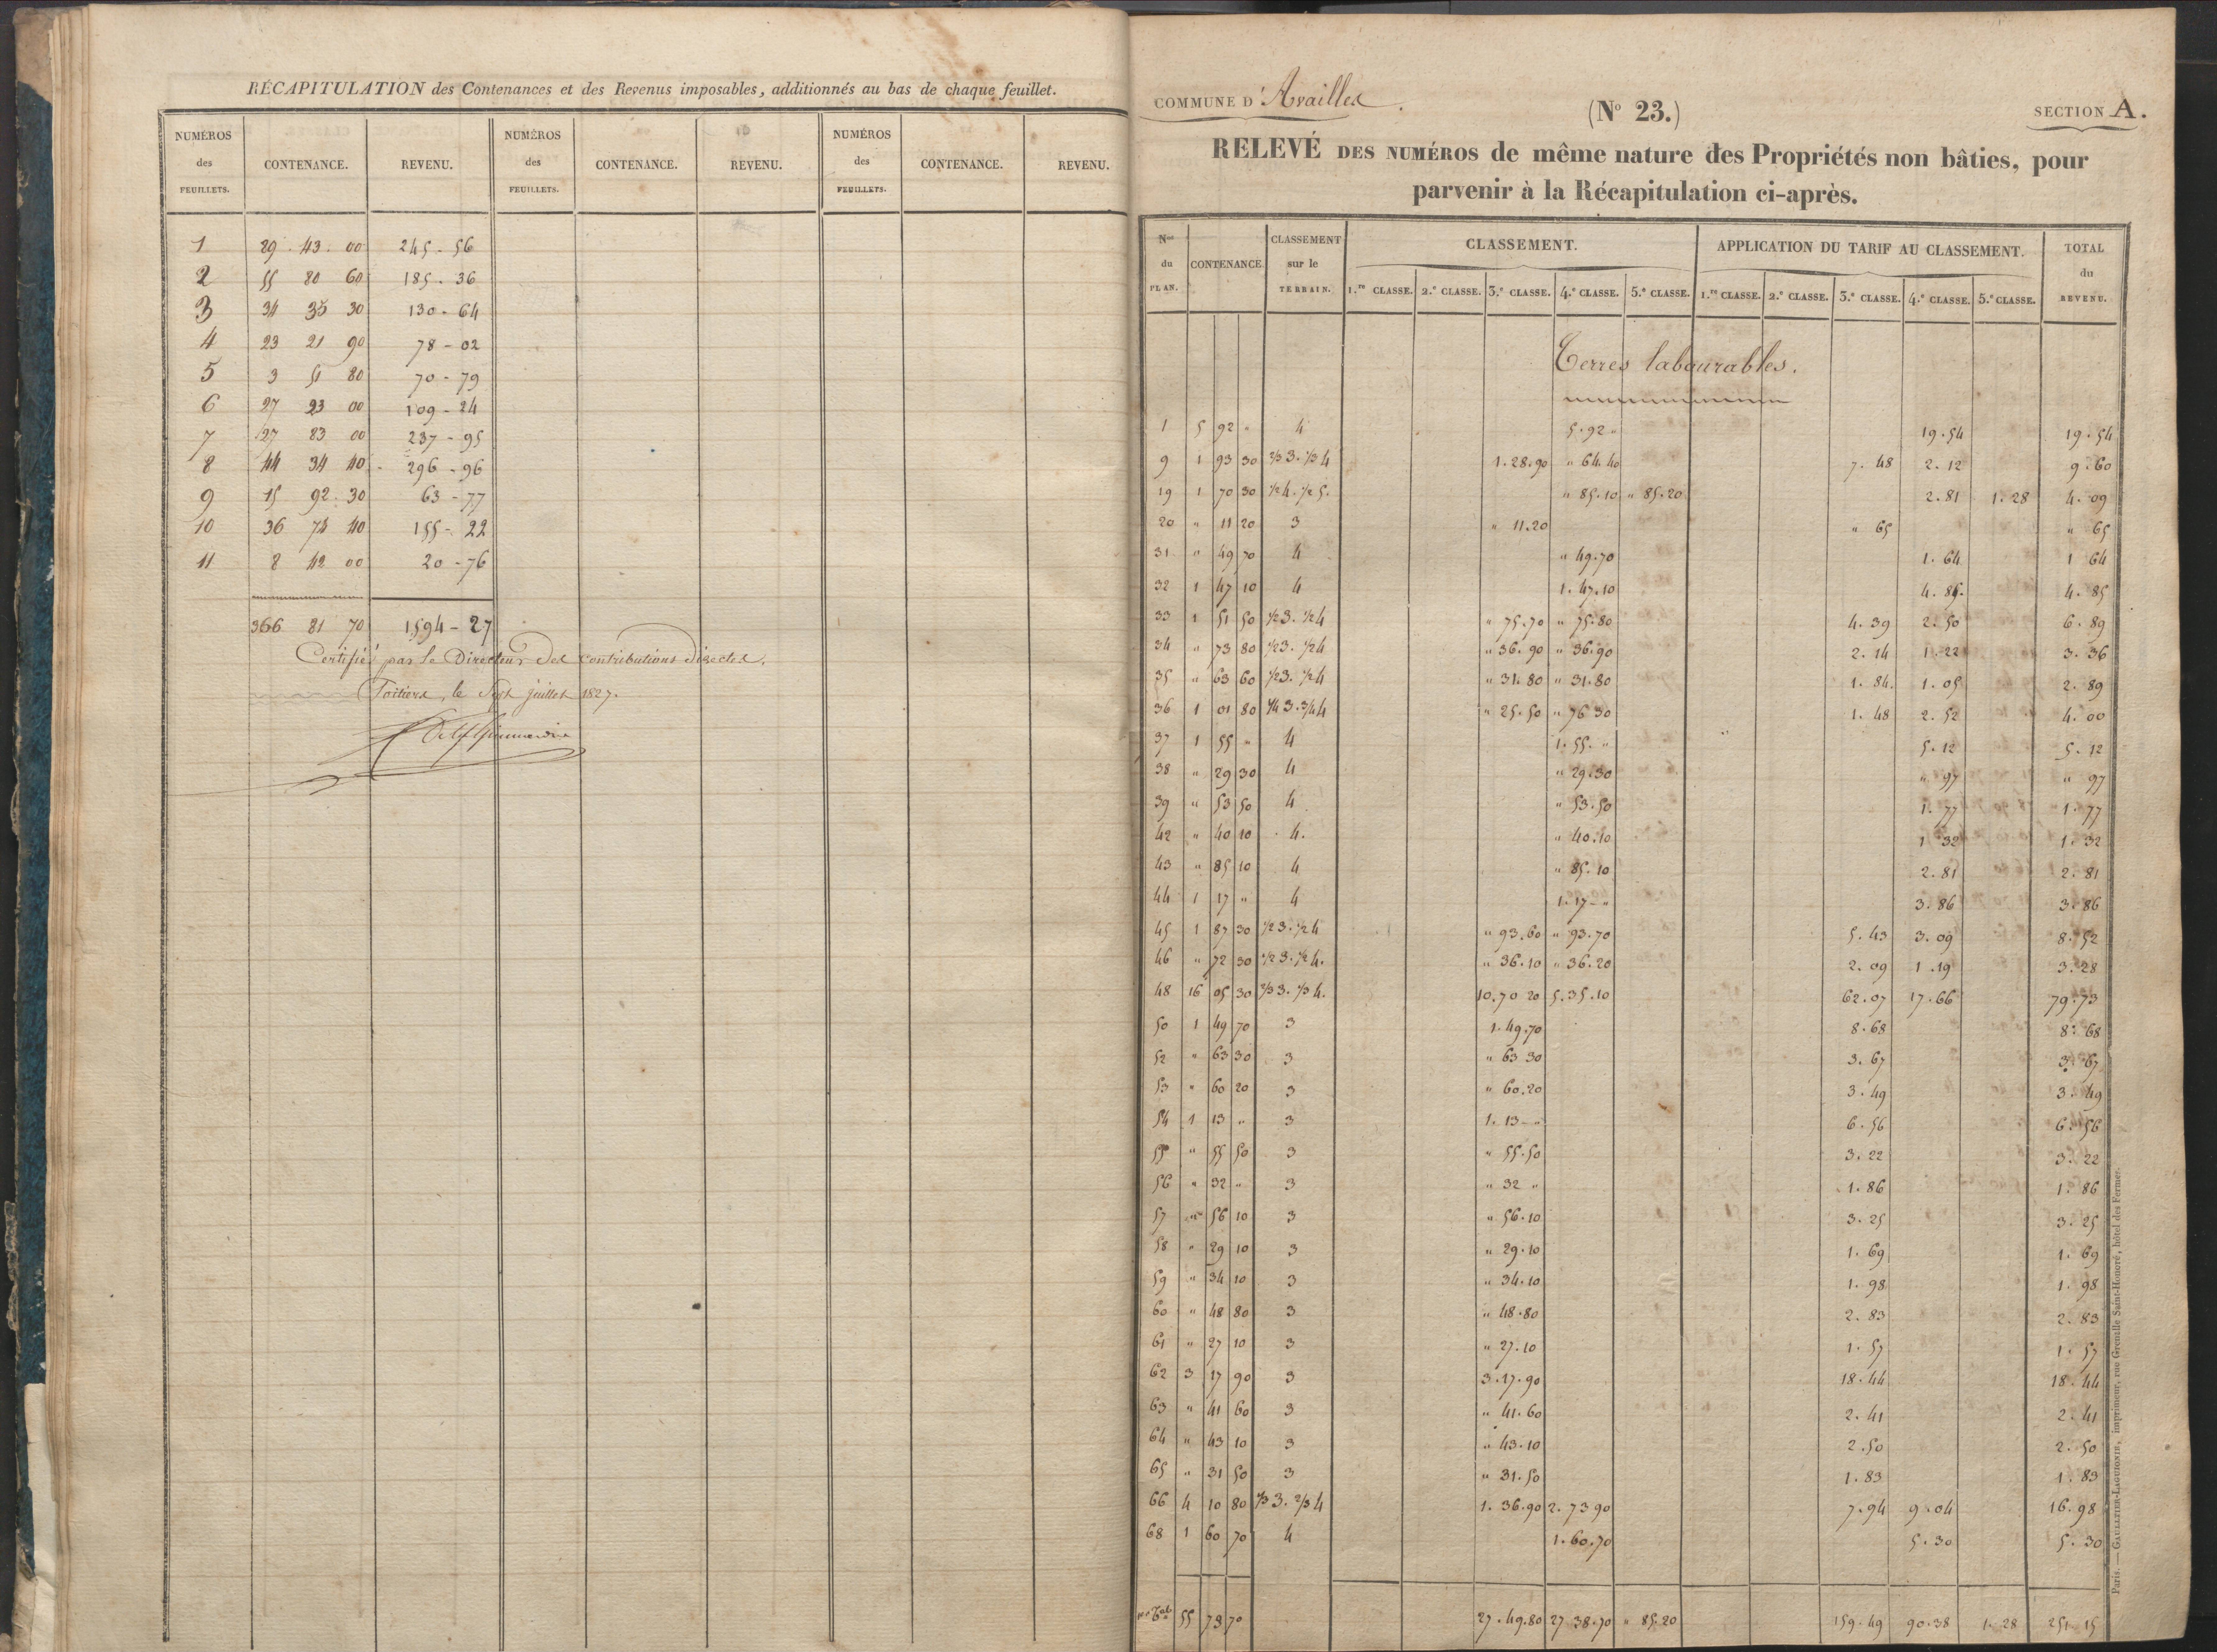 RÉCAPITULATION des Contenances et des Revenus imposables, additionnés au bas de chaque feuillet.
NUMÉROS des FEUILLETS. CONTENANCE. REVENU. NUMÉROS des FEUILLETS. CONTENANCE. REVENU. NUMÉROS des FEUILLETS. CONTENANCE. REVENU.
1 29 . 43 . 00 245 - 56
2 55 80 60 185 . 36
3 34 35 30 130 - 64
4 23 21 90 78 - 02
5 3 51 80 70 - 79
6 27 23 00 109 - 24
7 127 83 00 237 - 95
8 44 34 40 - 296 - 96
9 15 92 . 30 63 - 77
10 36 74 40 155 - 22
11 8 42 00 20 - 76
366 81 70 1594 - 27
Certifié par le Directeur des contributions directes.
Poitiers, le Sept juillet 1827.
COMMUNE D'Availles.
(No 23.)
SECTION A.
RELEVÉ DES NUMÉROS de même nature des Propriétés non bâties, pour
parvenir à la Récapitulation ci-après.
Nos du PLAN. CONTENANCE. CLASSEMENT sur le TERRAIN. CLASSEMENT. APPLICATION DU TARIF AU CLASSEMENT. TOTAL du REVENU.
1.re CLASSE. 2.e CLASSE. 3.e CLASSE. 4.e CLASSE. 5.e CLASSE. 1.re CLASSE. 2.e CLASSE. 3.e CLASSE. 4.e CLASSE. 5.e CLASSE.
Terres labourables.
1 5 92 " 4 5.92 " 19.54 19.54
9 1 93 30 2/3 3. 1/3 4 1.28.90 " 64.40 7.48 2.12 9.60
19 1 70 30 1/2 4. 1/2 5. " 85.10 " 85.20 2.81 1.28 4.09
20 " 11 20 3 " 11.20 " 65 " 65
31 " 49 70 4 " 49.70 1.64 1 64
32 1 47 10 4 1.47.10 4.85. 4.85
33 1 51 50 1/2 3. 1/2 4 " 75.70 " 75.80 4.39 2.50 6.89
34 " 73 80 1/2 3. 1/2 4 " 36.90 " 36.90 2.14 1.22 3.36
35 " 63 60 1/2 3. 1/2 4 " 31.80 " 31.80 1.84. 1.05 2.89
36 1 01 80 1/4 3. 3/4 4 " 25.50 " 76 30 1.48 2.52 4.00
37 1 55 " 4 1.55. " 5.12 5.12
38 " 29 30 4 " 29.30 " 97 " 97
39 " 53 50 4 " 53.50 1.77 1.77
42 " 40 10 4. " 40.10 1 32 1.32
43 " 85 10 4 " 85.10 2.81 2.81
44 1 17 " 4 1.17 - " 3.86 3.86
45 1 87 30 1/2 3. 1/2 4 " 93.60 " 93.70 5.43 3.09 8.52
46 " 72 30 1/2 3. 1/2 4. " 36.10 " 36.20 2.09 1.19 3.28
48 16 05 30 2/3 3. 1/3 4. 10.70 20 5.35.10 62.07 17.66 79.73
50 1 49 70 3 1.49.70 8.68 8.68
52 " 63 30 3 " 63 30 3.67 3.67
53 " 60 20 3 " 60.20 3.49 3.49
54 1 13 " 3 1.13 - " 6.56 6.56
55 " 55 50 3 " 55.50 3.22 3.22
56 " 32 " 3 " 32 " 1.86 1.86
57 " 56 10 3 " 56.10 3.25 3.25
58 " 29 10 3 " 29.10 1.69 1.69
59 " 34 10 3 " 34.10 1.98 1.98
60 " 48 80 3 " 48.80 2.83 2.83
61 " 27 10 3 " 27.10 1.57 1.57
62 3 17 90 3 3.17.90 18.44 18.44
63 " 41 60 3 " 41.60 2.41 2.41
64 " 43 10 3 " 43.10 2.50 2.50
65 " 31 50 3 " 31.50 1.83 1.83
66 4 10 80 1/3 3. 2/3 4 1.36.90 2.73 90 7.94 9.04 16.98
68 1 60 70 4 1.60.70 5.30 5.30
55 73 70 27.49.80 27 38.70 " 85.20 159.49 90.38 1.28 251 15
Paris. — GAULTIER-LAGUIONIE, imprimeur, rue Grenelle Saint-Honoré, hôtel des Fermes.